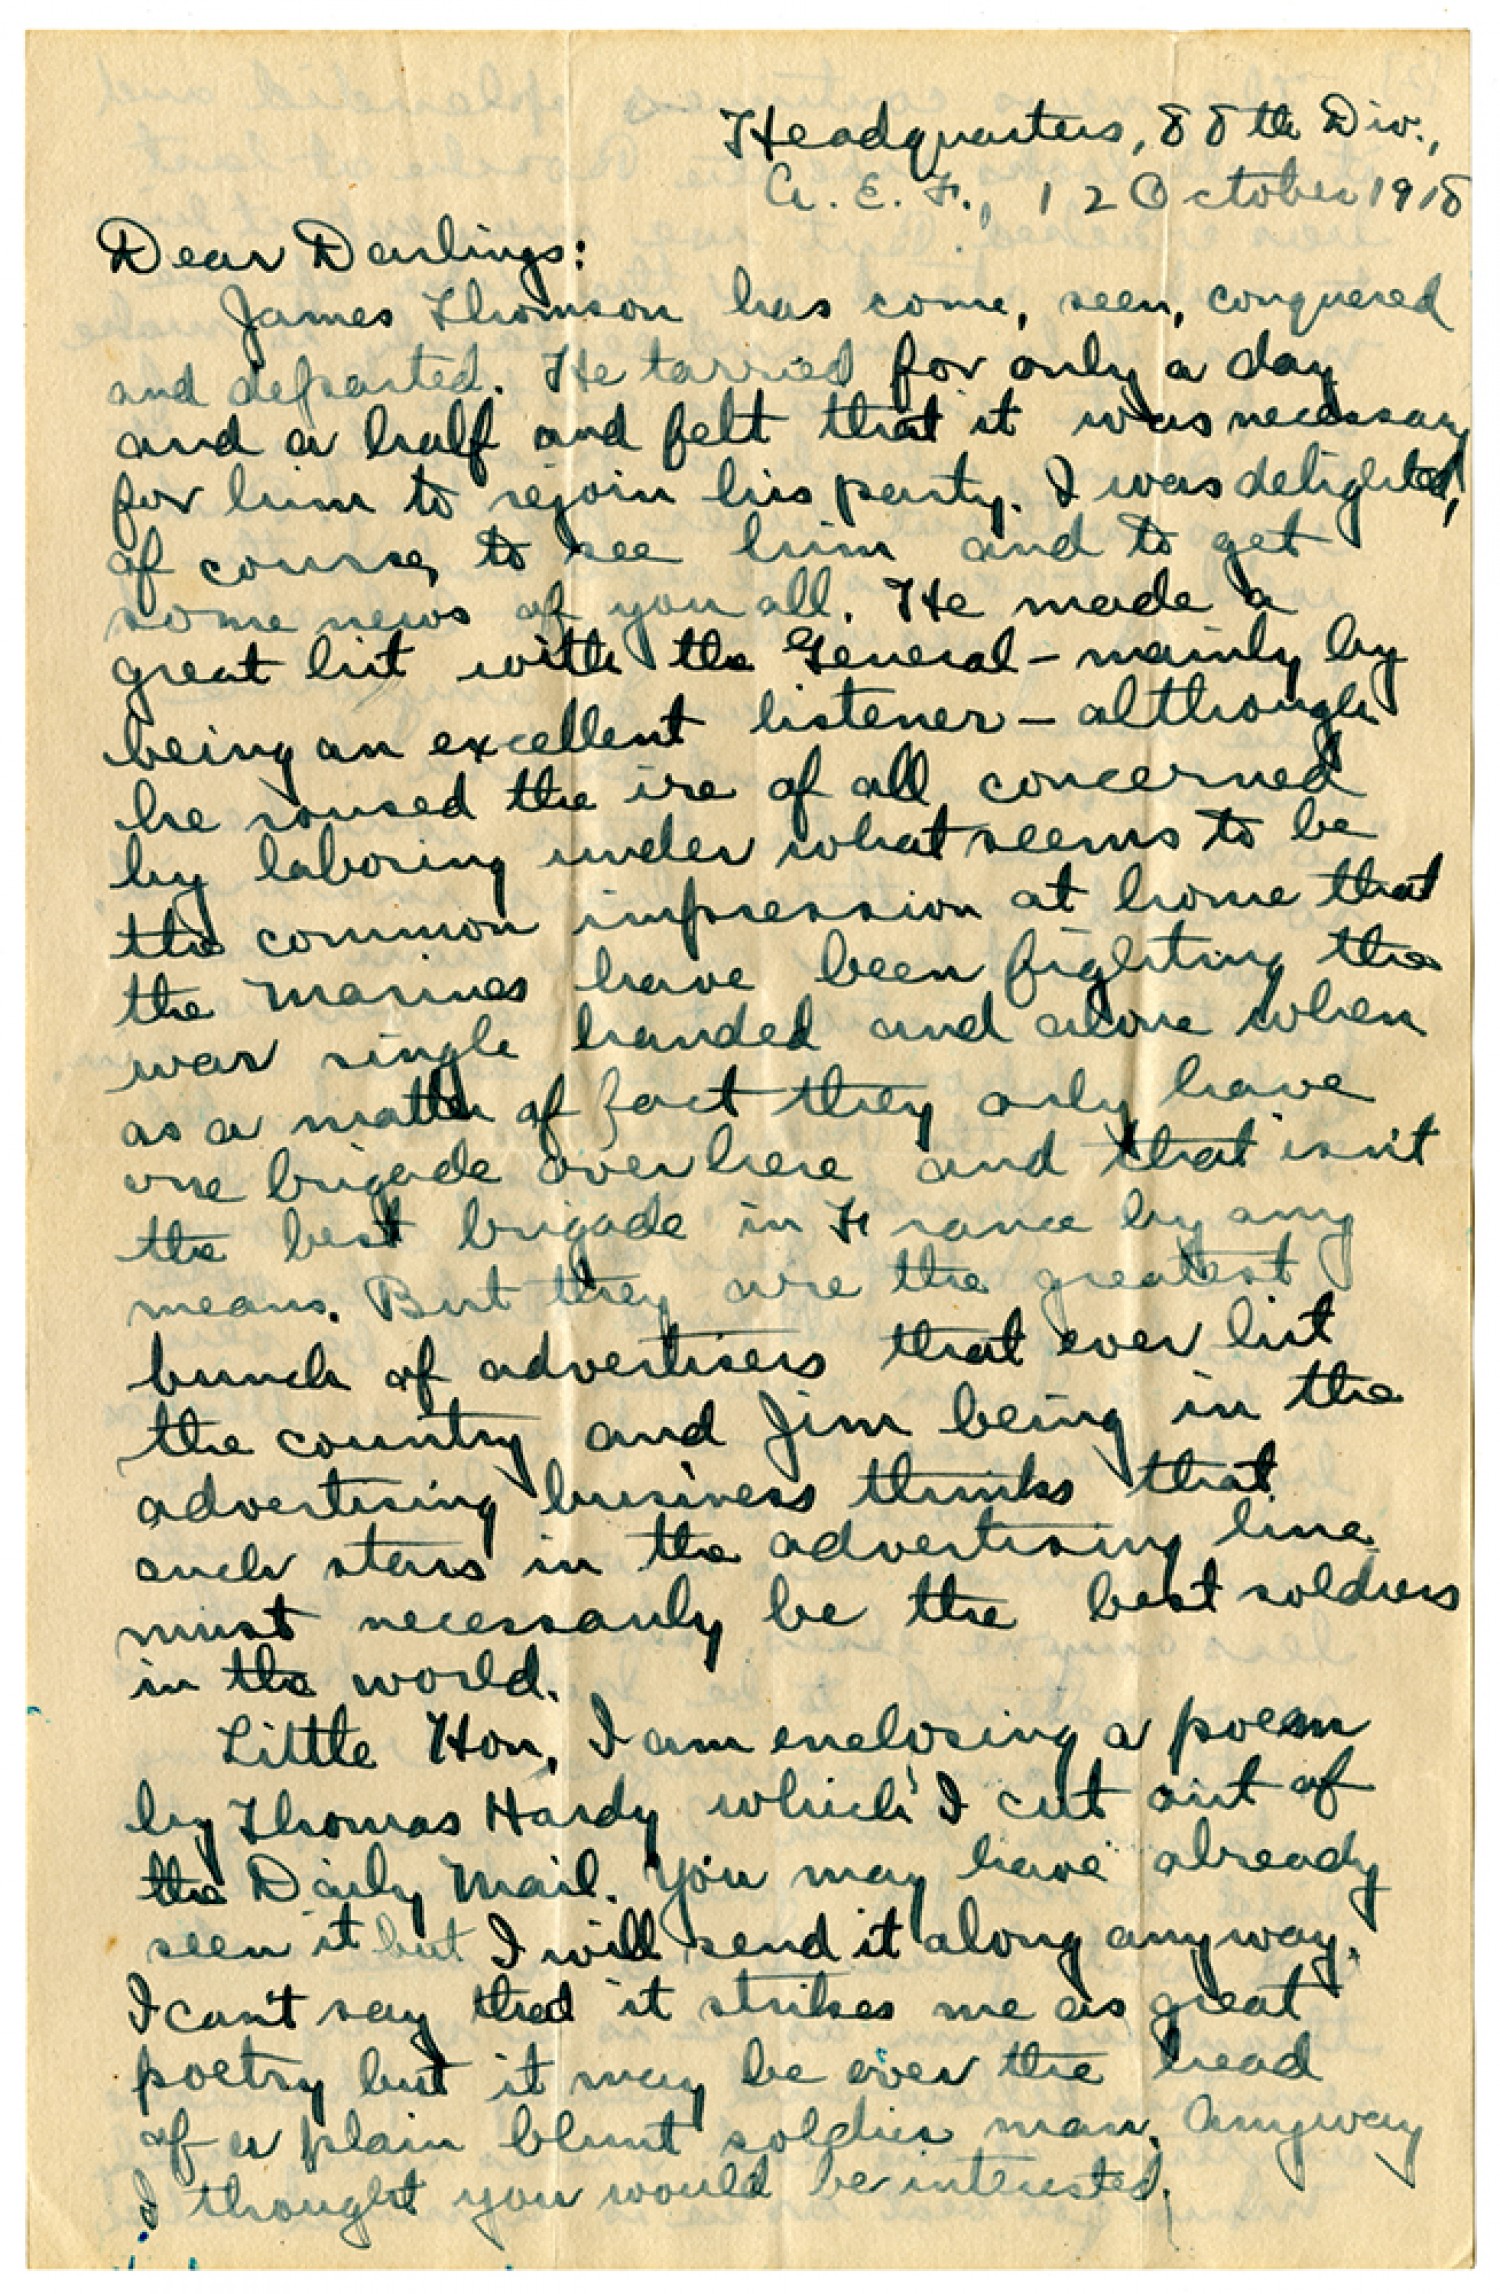 Headquarters, 88th Div.,
A. E. F., 12 October 1918
Dear Darlings:
James Thomson has come, seen, conquered
and departed. He tarried for only a day
and a half and felt that it was necessary
for him to rejoin his party. I was delighted,
of course, to see him and to get
some news of you all. He made a
great hit with the General - mainly by
being an excellent listener - although
he roused the ire of all concerned
by laboring under what seems to be
the common impression at home that
the Marines have been fighting the
war single handed and alone when
as a matter of fact they only have
one brigade over here and that isn't
the best brigade in France by any
means. But they are the greatest
bunch of advertisers that ever hit
the country and Jim being in the
advertising business thinks that
such stars in the advertising line
must necessarily be the best soldiers
in the world.
Little Hon, I am enclosing a poem
by Thomas Hardy which I cut out of
the Daily Mail. You may have already
seen it but I will send it along anyway.
I can't say that it strikes me as great
poetry but it may be over the head
of a plain blunt soldier man. Anyway
I thought you would be interested.